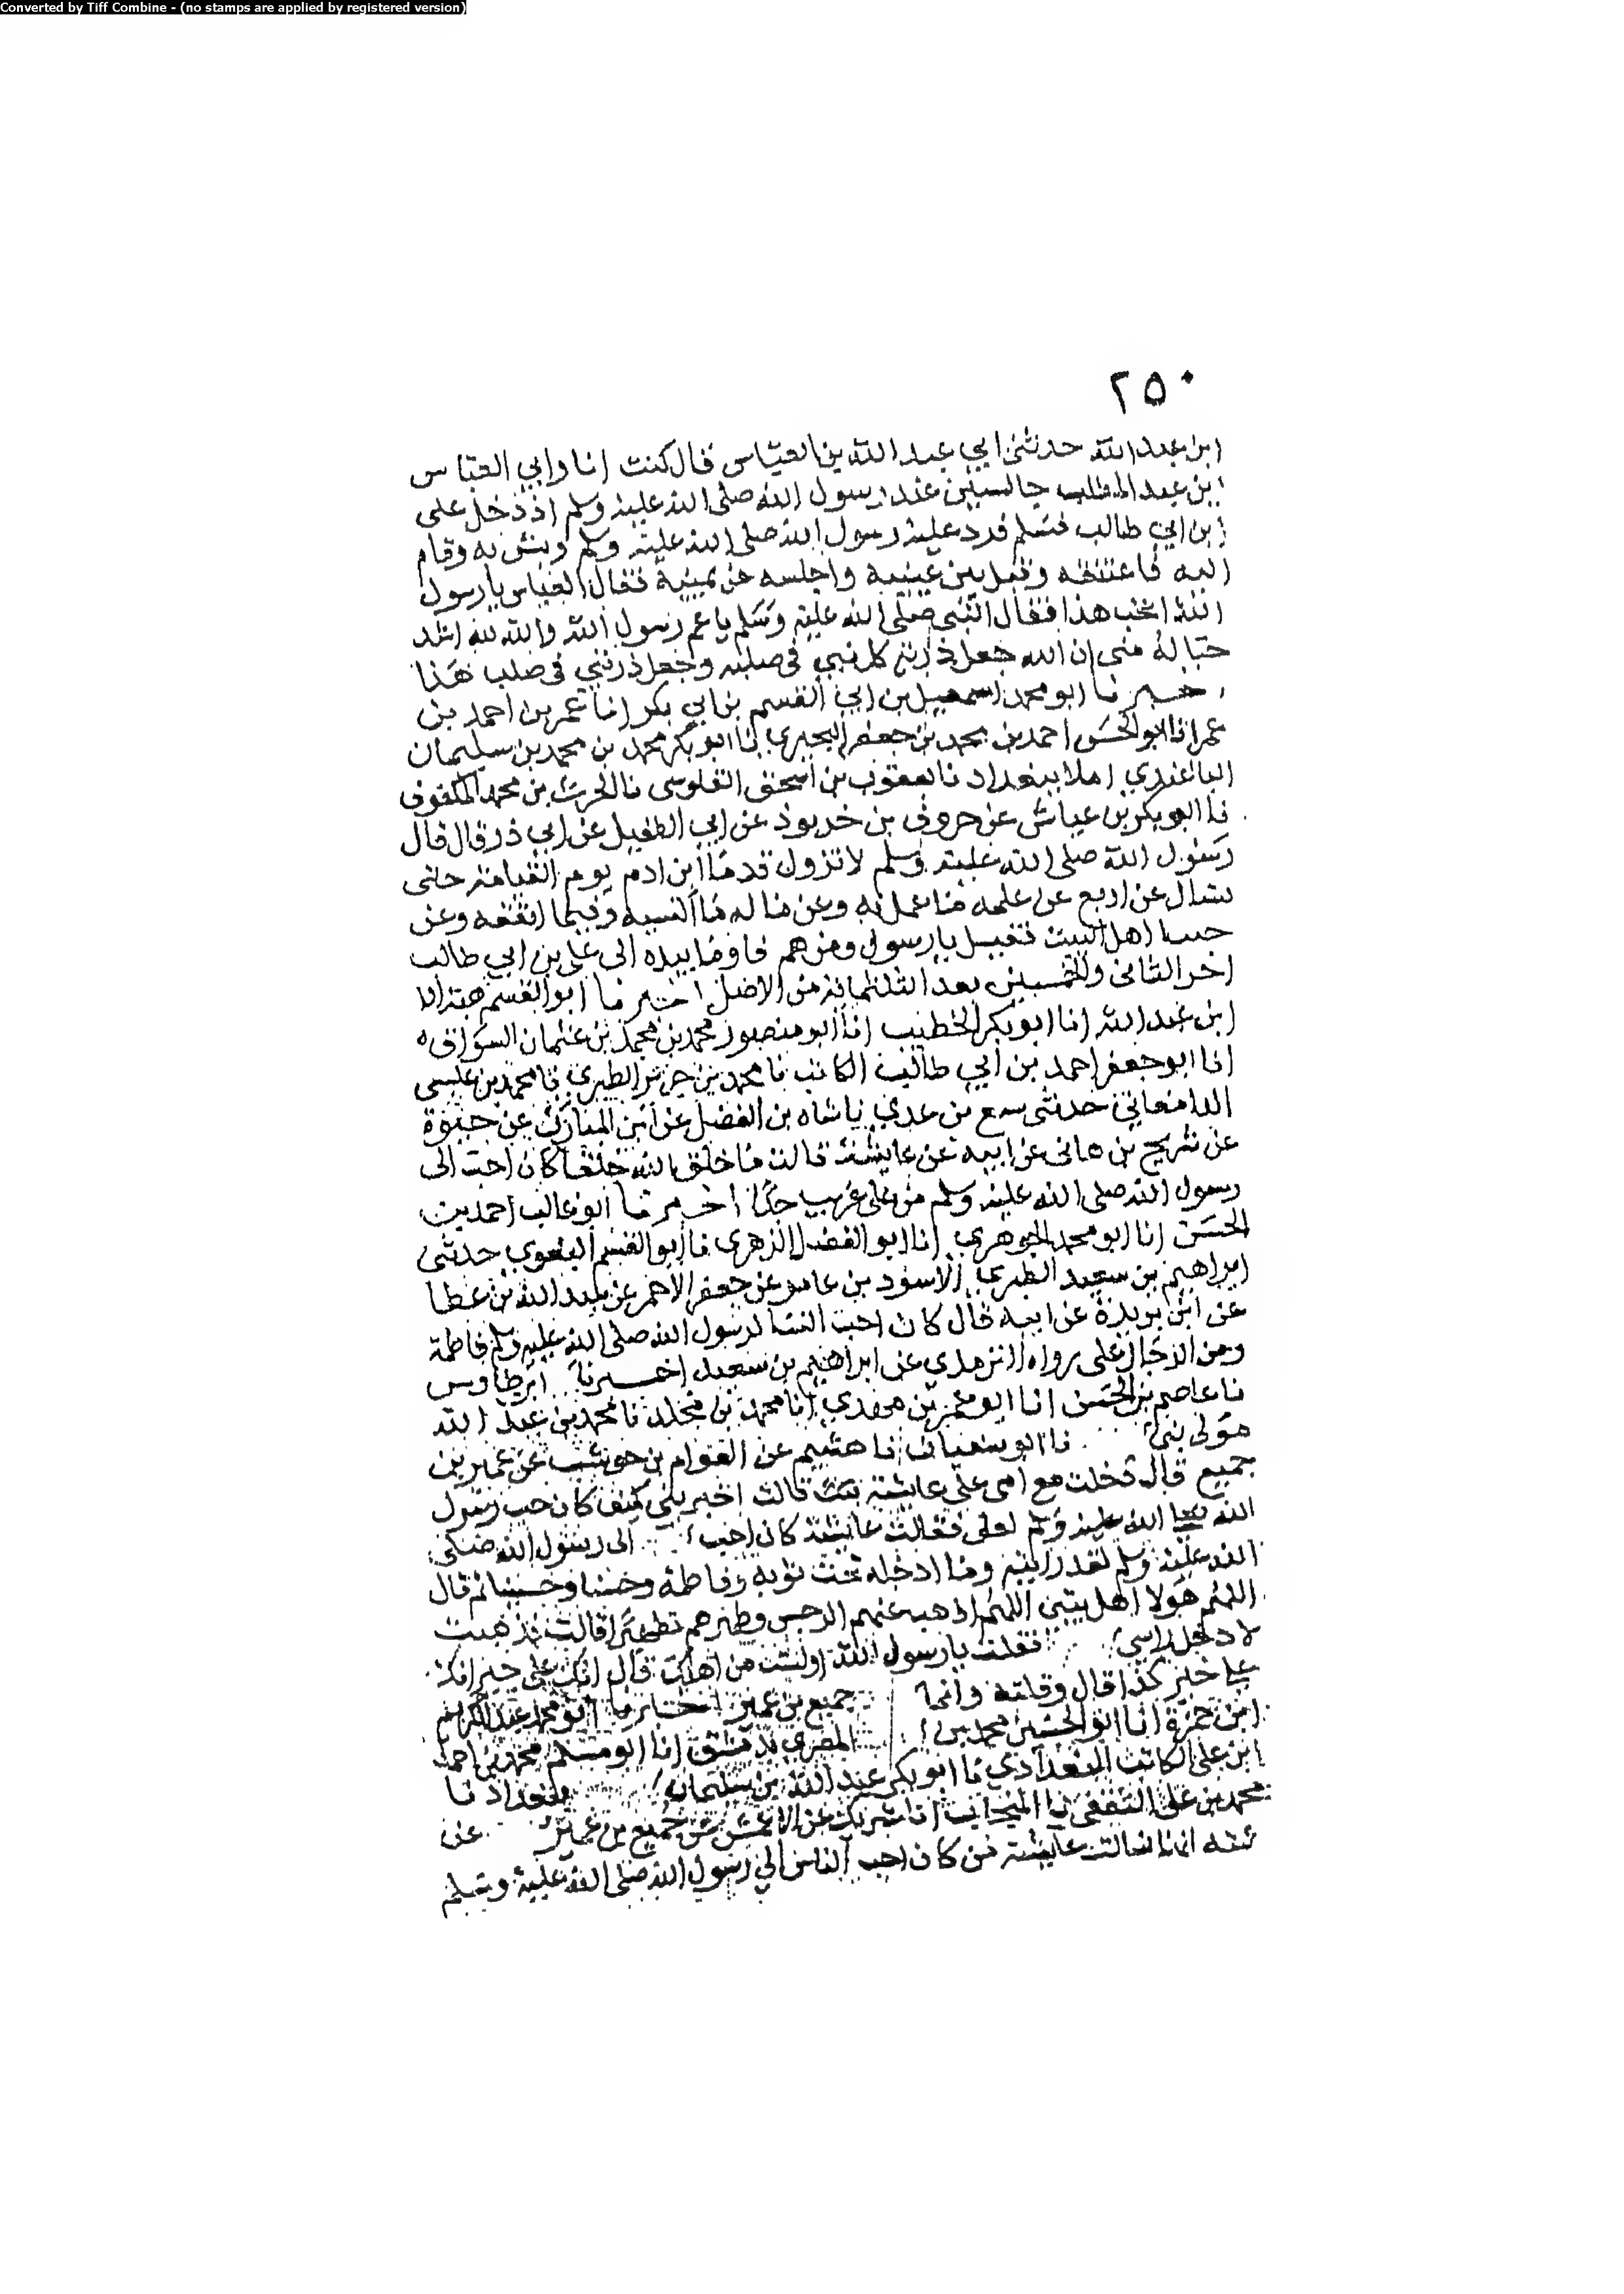 Converted by Tiff Combine - (no stamps are applied by registered version)
٢٥٠
ابن عبد الله حدثني ابي عبد الله بن العباس قال كنت انا وابي العباس
ابن عبد المطلب جالسين عند رسول الله صلى الله عليه وسلم اذ دخل على
ابن ابي طالب فسلم فرد عليه رسول الله صلى الله عليه وسلم وبش به وقام
اليه فاعتنقه وقبل بين عينيه واجلسه عن يمينه فقال العباس يا رسول
الله اتحب هذا فقال النبي صلى الله عليه وسلم يا عم رسول الله والله لله اشد
حبا له مني ان الله جعل ذرية كل نبي في صلبه وجعل ذريتي في صلب هذا
اخبرنا ابو محمد اسمعيل بن ابي القسم بن ابي بكر انا عمر بن احمد بن
عمر انا ابو الحسن احمد بن محمد بن جعفر البحيري انا ابو بكر محمد بن محمد بن سليمان
الباغندي املا ببغداد نا يعقوب بن اسحق القلوسي نا الحرث بن محمد المكفوف
نا ابو بكر بن عياش عن معروف بن خربوذ عن ابي الطفيل عن ابي ذر قال قال
رسول الله صلى الله عليه وسلم لا تزول قدما ابن ادم يوم القيامة حتى
يسال عن اربع عن علمه ما عمل به وعن ماله مما اكتسبه وفيما انفقه وعن
حب اهل البيت فقيل يا رسول ومن هم فاومأ بيده الى علي بن ابي طالب
اخر الثامن والخمسين بعد الثلثمائة من الاصل اخبرنا ابو القسم هبة الله
ابن عبد الله انا ابو بكر الخطيب انا ابو منصور محمد بن محمد بن عثمان السواق
انا ابو جعفر احمد بن ابي طالب الكاتب نا محمد بن جرير الطبري نا محمد بن عيسى
الدامغاني حدثني بن عدي نا شاه بن الفضل عن ابن المبارك عن حيوة
عن شريح بن هانى عن ابيه عن عايشة قالت ما خلق الله خلقا كان احب الى
رسول الله صلى الله عليه وسلم من علي غريب جدا اخبرنا ابو غالب احمد بن
الحسن انا ابو محمد الجوهري انا ابو الفضل الزهري نا ابو القسم البغوي حدثني
ابراهيم بن سعيد الاسود بن عامر عن جعفر الاحمر عن عبد الله بن عطا
عن ابن بريدة عن ابيه قال كان احب النسا لرسول الله صلى الله عليه وسلم فاطمة
ومن الرجال علي رواه الترمذي عن ابراهيم بن سعيد اخبرنا ابن طاوس
نا عاصم بن الحسن انا ابو عمر بن مهدي انا محمد بن مخلد نا محمد بن عبد الله
مولى بني نا ابو سفيان نا هشيم عن العوام بن حوشب عن عمير بن
جميع قال دخلت مع امي على عايشة قالت اخبريني كيف كان حب رسول
الله صلى الله عليه وسلم لعلي فقالت عايشة كان احب الى رسول الله صلى
الله عليه وسلم لقد رايته وما ادخله تحت ثوبه وفاطمة وحسنا وحسينا ثم قال
اللهم هولا اهل بيتي اللهم اذهب عنهم الرجس وطهرهم تطهيرا قالت فذهبت
لادخل راسي فقلت يا رسول الله اولست من اهلك قال انك على خير انك
على خير كذا قال وقلته وانما جميع بن عمير اخبرنا ابو محمد عبد الكريم
ابن حمزة انا ابو الحسين محمد بن المصري بدمشق انا ابو مسلم محمد بن احمد
ابن علي الكاتب البغدادي نا ابو بكر عبد الله بن سليمان ببغداد نا
محمد بن علي الثقفي نا المنجاب انا شريك عن الاعمش عن جميع بن عمير عن
عمته انها سالت عايشة من كان احب الناس الى رسول الله صلى الله عليه وسلم